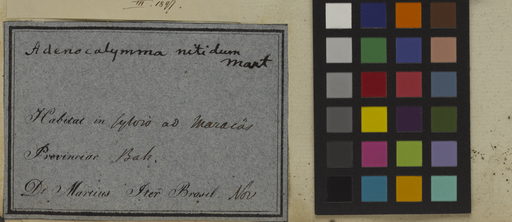 III 1887.
Adenocalymma nitidum
Mart
Habitat in sylvis ad Maracâs
Provinciae Bah.
Dr Martius Iter Brasil. Nov